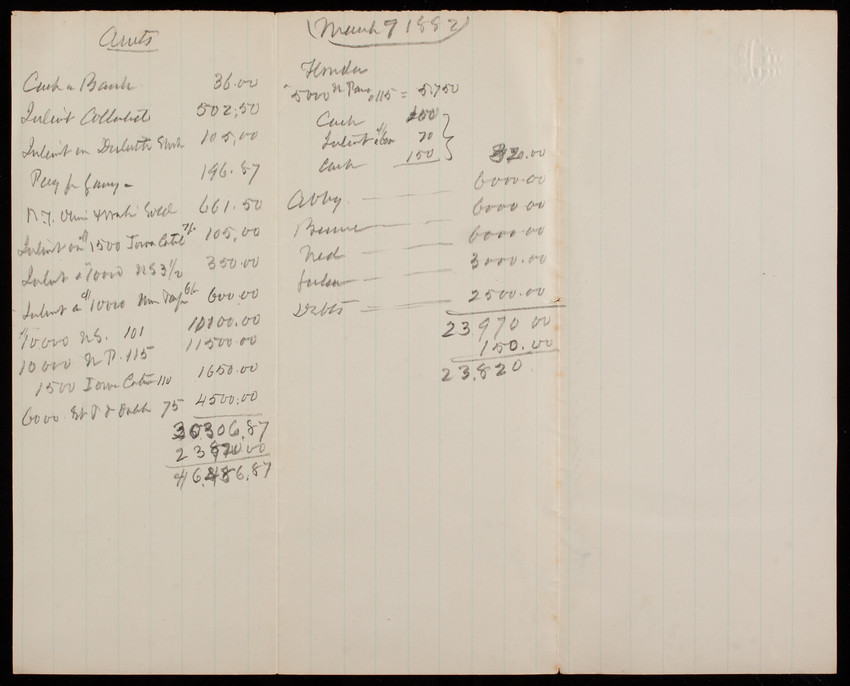 Amts
Cash in Bank 36.00
Interest Collected 502,50
Interest on Duluth Stock 105,00
Pay for Jany - 196.87
661.50
Interest on $1500 Iowa Cent 7% 105,00
Interest 10000 US 3 1/2 350.00
Interest $10000 6% 600.00
$10000 U.S. 101 10100.00
10000 N.P. 115 11500.00
1500 Iowa Cent 110 1650.00
6000 St P & Duluth 75 4500.00
30306,87
23820.00
46,486,87
(March 9 1882)
5000 N. Pac 115 = 5,750
Cash 100
Interest 70
Cash 150
320.00
6000.00
Abby 6000.00
Bessie 6000.00
Ned 3000.00
Debts 2500.00
23.970 00
150.00
23,820.